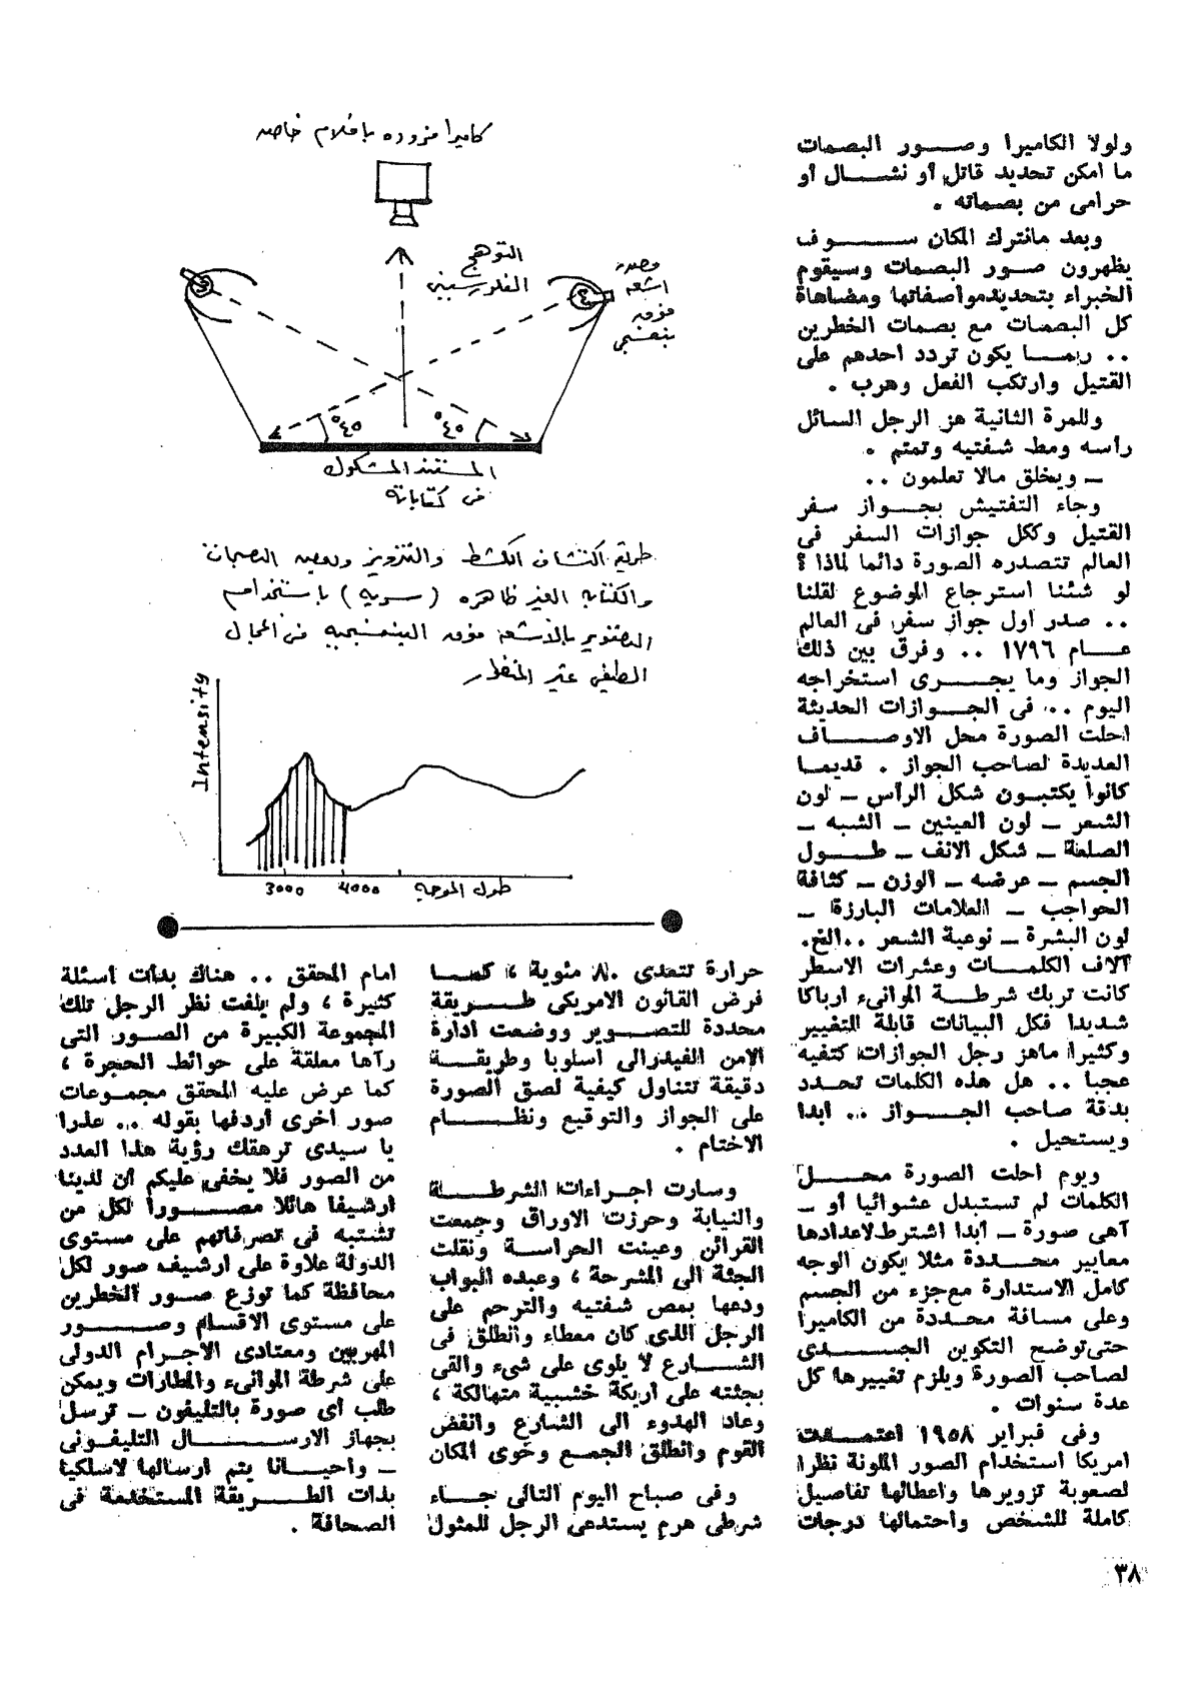 ولولا الكاميرا وصور البصمات
ما امكن تحديد قاتل أو نشال أو
حرامى من بصماته .
وبعد مانترك المكان سوف
يظهرون صور البصمات وسيقوم
الخبراء بتحديدمواصفاتها ومضاهاة
كل البصمات مع بصمات الخطرين
.. ربما يكون تردد احدهم على
القتيل وارتكب الفعل وهرب .
وللمرة الثانية هز الرجل السائل
رأسه ومط شفتيه وتمتم .
– ويخلق مالا تعلمون ..
وجاء التفتيش بجواز سفر
القتيل وككل جوازات السفر فى
العالم تتصدره الصورة دائما لماذا ؟
لو شئنا استرجاع الموضوع لقلنا
.. صدر اول جواز سفر فى العالم
عام ١٧٩٦ .. وفرق بين ذلك
الجواز وما يجرى استخراجه
اليوم .. فى الجوازات الحديثة
احلت الصورة محل الاوصاف
العديدة لصاحب الجواز . قديما
كانوا يكتبون شكل الرأس – لون
الشعر – لون العينين – الشبه –
الصلعة – شكل الانف – طول
الجسم – عرضه – الوزن – كثافة
الحواجب – العلامات البارزة –
لون البشرة – نوعية الشعر ..الخ.
آلاف الكلمات وعشرات الاسطر
كانت تربك شرطة الموانىء ارباكا
شديدا فكل البيانات قابلة للتغيير
وكثيرا ماهز رجل الجوازات كتفيه
عجبا .. هل هذه الكلمات تحدد
بدقة صاحب الجواز .. ابدا
ويستحيل .
ويوم احلت الصورة محل
الكلمات لم تستبدل عشوائيا أو –
آهى صورة – ابدا اشترط لاعدادها
معايير محددة مثلا يكون الوجه
كامل الاستدارة مع جزء من الجسم
وعلى مسافة محددة من الكاميرا
حتى توضح التكوين الجسدى
لصاحب الصورة ويلزم تغييرها كل
عدة سنوات .
وفى فبراير ١٩٥٨ اعتمدت
امريكا استخدام الصور الملونة نظرا
لصعوبة تزويرها واعطائها تفاصيل
كاملة للشخص واحتمالها درجات
كاميرا مزوده بافلام خاصه
التوهج
الفلورسيني
مصدر
اشعه
فوق
بنفسجى
٤٥°
٤٥°
المستند المشكوك
فى كتاباته
طريقة اكتشاف الكشط والتزوير وبعض البصمات
والكتابه الغير ظاهره ( سريه ) باستخدام
التصوير بالأشعه فوق البنفسجيه فى المجال
الطيفى غير المنظور
Intensity
3000
4000
طول الموجه
حرارة تتعدى ٨٠ مئوية ، كما
فرض القانون الامريكى طريقة
محددة للتصوير ووضعت ادارة
الامن الفيدرالى اسلوبا وطريقة
دقيقة تتناول كيفية لصق الصورة
على الجواز والتوقيع ونظام
الاختام .
وسارت اجراءات الشرطة
والنيابة وحرزت الاوراق وجمعت
القرائن وعينت الحراسة ونقلت
الجثة الى المشرحة ، وعبده البواب
ودعها بمص شفتيه والترحم على
الرجل الذى كان معطاء وانطلق فى
الشارع لا يلوى على شىء والقى
بجثته على اريكة خشبية متهالكة ،
وعاد الهدوء الى الشارع وانفض
القوم وانطلق الجمع وخوى المكان
وفى صباح اليوم التالى جاء
شرطى هرم يستدعى الرجل للمثول
امام المحقق .. هناك بدأت اسئلة
كثيرة ، ولم يلفت نظر الرجل تلك
المجموعة الكبيرة من الصور التى
رآها معلقة على حوائط الحجرة ،
كما عرض عليه المحقق مجموعات
صور اخرى اردفها بقوله .. عذرا
يا سيدى ترهقك رؤية هذا العدد
من الصور فلا يخفى عليكم ان لدينا
ارشيفا هائلا مصورا لكل من
تشتبه فى تصرفاتهم على مستوى
الدولة علاوة على ارشيف صور لكل
محافظة كما توزع صور الخطرين
على مستوى الاقسام وصور
المهربين ومعتادى الاجرام الدولى
على شرطة الموانىء والمطارات ويمكن
طلب أى صورة بالتليفون – ترسل
بجهاز الارسال التليفونى
– واحيانا يتم ارسالها لاسلكيا
بذات الطريقة المستخدمة فى
الصحافة .
٣٨